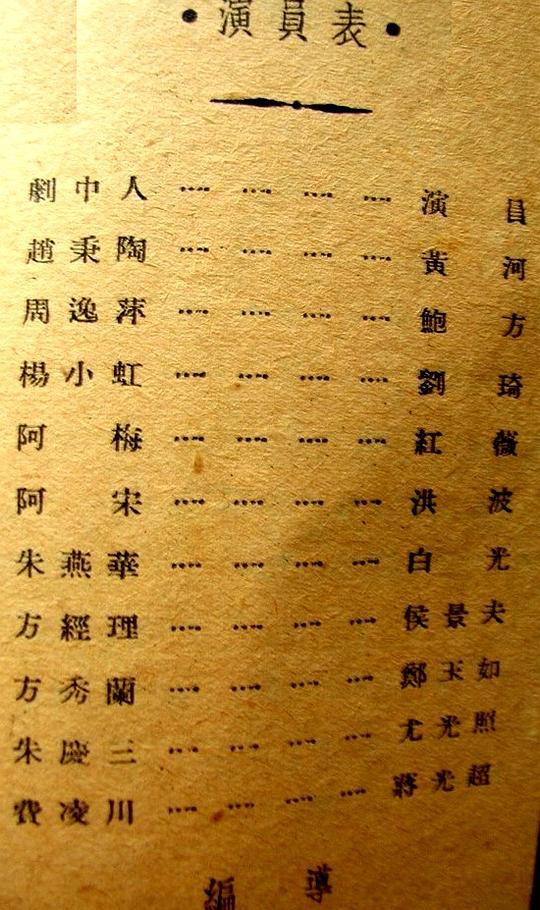 •演員表•
劇中人 ········ 演員
趙秉陶 ········ 黃河
周逸萍 ········ 鮑方
楊小虹 ········ 劉琦
阿梅 ········ 紅薇
阿宋 ········ 洪波
朱燕華 ········ 白光
方經理 ········ 侯景夫
方秀蘭 ········ 鄭玉如
朱慶三 ········ 尤光照
費凌川 ········ 蔣光超
編導